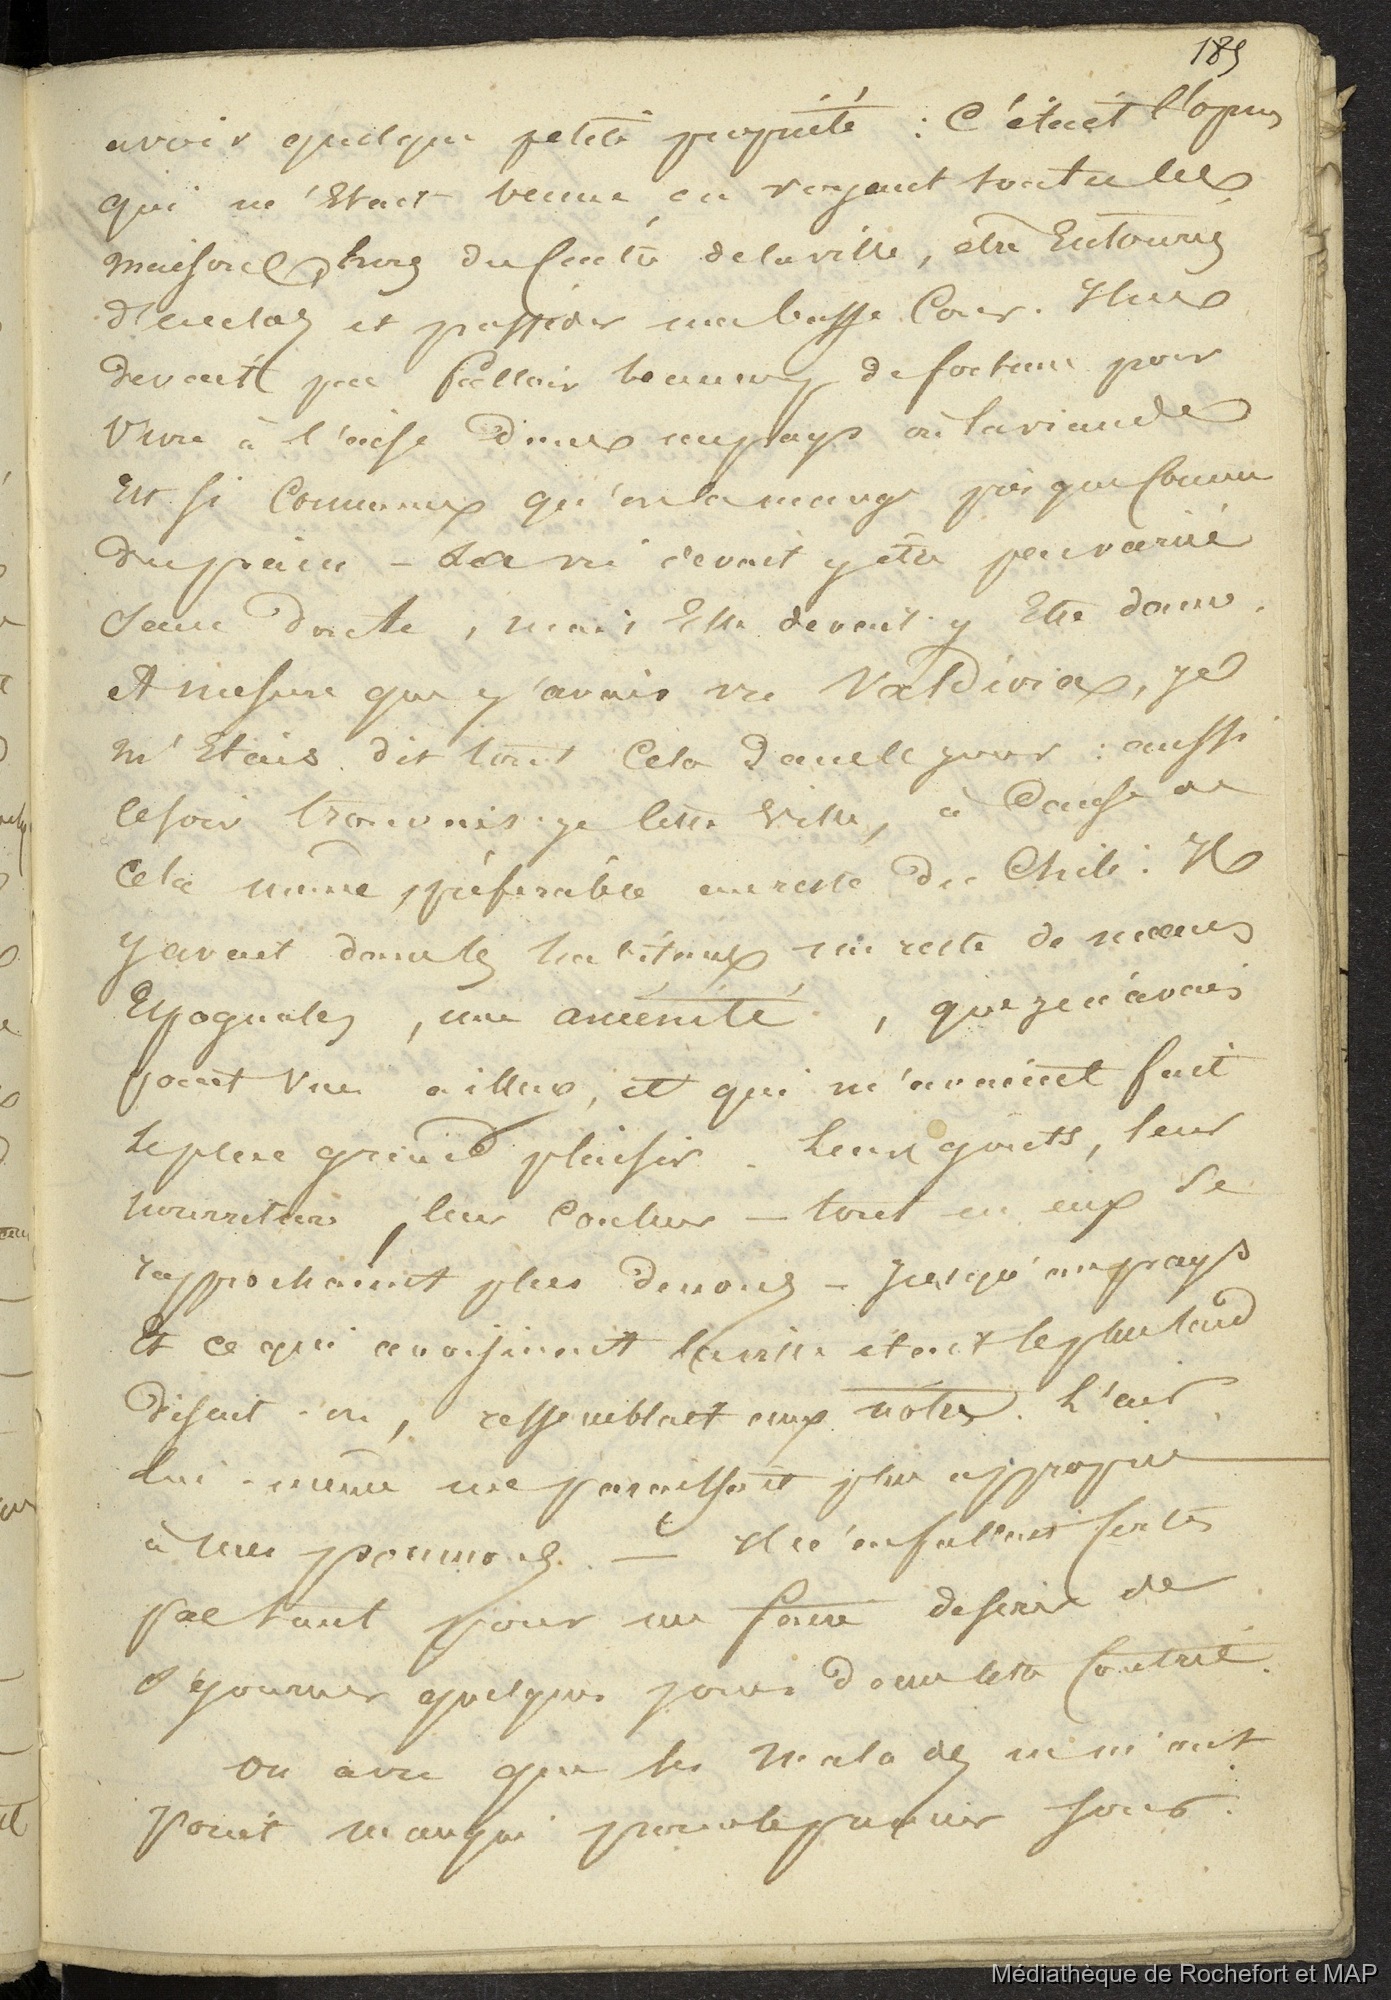 189
avoir quelque petite propriété : C'était l'opin
qui m'Etait venue, en voyant toutes les
maisons, hors du Centre de la ville, être Entourés
d'enclos et posséder une basse Cour. Il ne
devait pas falloir beaucoup de fortune pour
Vivre à l'aise dans un pays où la viande
Est si Commune qu'on la mange presque Comme
du pain – La vie devait y être peu variée
Sans Doute, mais Elle devait y Etre douce.
A mesure que j'avais vu Valdivia, je
m'Etais dit tout Cela dans le jour : aussi
le soir trouvais-je cette Ville, à Cause de
cela même, préférable au reste du Chili : Il
y avait dans les habitans un reste de mœurs
Espagnoles, une aménité, que je n'avais
point Vue ailleurs, et qui m'avaient fait
le plus grand plaisir. Leurs goûts, leur
nourriture, leur Couleur – tout en eux se
rapprochaient plus de nous – Jusqu'au pays
Et ce qui avoisinait la ville était le plus tard
disait-on, ressemblait aux notres. L'air
lui-même me paraissait plus approprié
à mes poumons. – Il n'en fallait Certes
pas tant pour me faire desirer de
séjourner quelques jours dans cette Contrée.
On a vu que les Malades ne m'ont
point manqué pour le premier jour.
Médiathèque de Rochefort et MAP